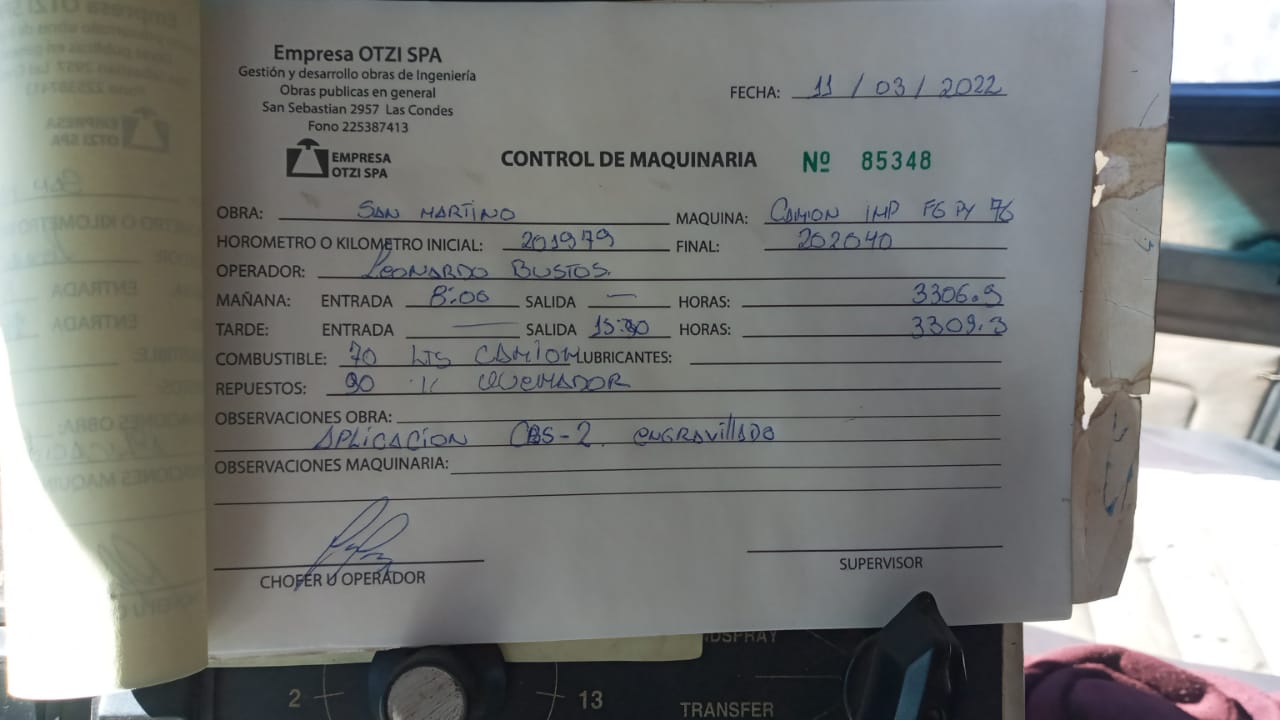 Empresa OTZI SPA
Gestión y desarrollo obras de Ingeniería
Obras publicas en general
San Sebastian 2957 Las Condes
Fono 225387413
EMPRESA
OTZI SPA
FECHA: 11 / 03 / 2022
CONTROL DE MAQUINARIA Nº 85348
OBRA: SAN MARTINO MAQUINA: CAMION IMP FG PY 76
HOROMETRO O KILOMETRO INICIAL: 201979 FINAL: 202040
OPERADOR: LEONARDO BUSTOS.
MAÑANA: ENTRADA 8:00 SALIDA — HORAS: 3306.9
TARDE: ENTRADA — SALIDA 15:30 HORAS: 3309.3
COMBUSTIBLE: 70 LTS CAMION LUBRICANTES:
REPUESTOS: 90 " QUEMADOR
OBSERVACIONES OBRA:
APLICACION CBS-2. ENGRAVILLADO
OBSERVACIONES MAQUINARIA:
CHOFER U OPERADOR
SUPERVISOR
2
13
TRANSFER